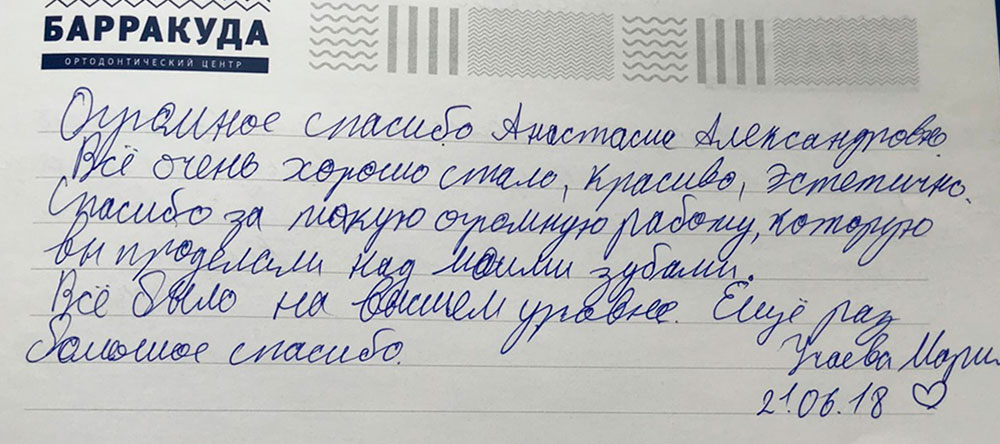 БАРРАКУДА
ОРТОДОНТИЧЕСКИЙ ЦЕНТР
Огромное спасибо Анастасие Александровне.
Всё очень хорошо стало, красиво, эстетично.
Спасибо за такую огромную работу, которую
вы проделали над моими зубами.
Всё было на высшем уровне. Ещё раз
большое спасибо.
Мари
21.06.18 ♡